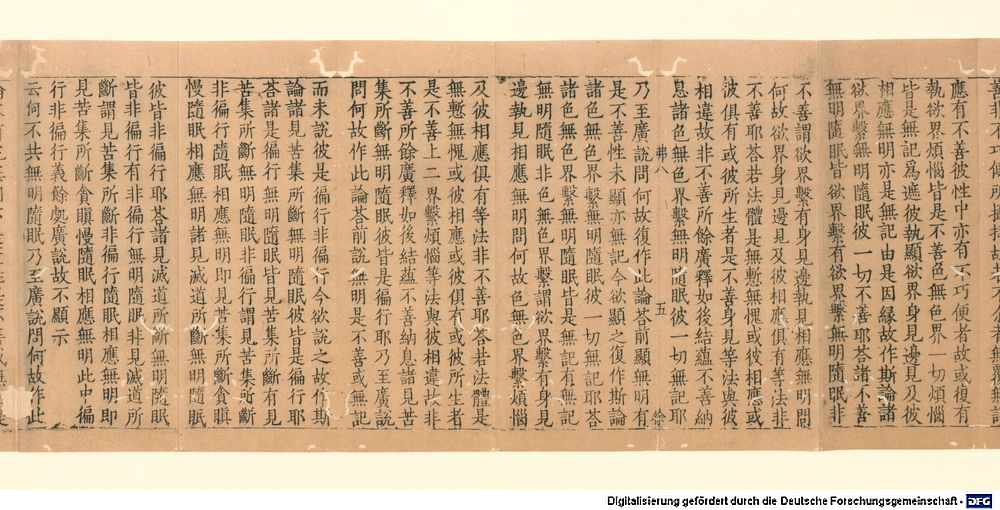 應有不善彼性中亦有一不巧便者故或復有
執欲界煩惱皆是不善色無色界一切煩惱
皆是無記為遮彼執顯欲界身見邊見及彼
相應無明亦是無記由是因緣故作斯論諸
欲界繫無明隨眠彼一切不善耶荅諸不善
無明隨眠皆欲界繫有欲界繫無明隨眠非
不善謂欲界繫有身見邊執見相應無明問
何故欲界身見邊見及彼相應俱有等法非
不善耶荅若法體是無慙無愧或彼相應或
彼俱有或彼所生者是不善身見等法與彼
相違故非不善所餘廣釋如後結蘊不善納
息諸色無色界繫無明隨眠彼一切無記耶
弗八 五 徐
乃至廣說問何故復作此論荅前顯無明有
是不善性未顯亦無記今欲顯之復作斯論
諸色無色界繫無明隨眠彼一切無記耶荅
諸色無色界繫無明隨眠皆是無記有無記
無明隨眠非色無色界繫謂欲界繫有身見
邊執見相應無明問何故色無色界繫煩惱
及彼相應俱有等法非不善耶荅若法體是
無慙無愧或彼相應或彼俱有或彼所生者
是不善上二界繫煩惱等法與彼相違故非
不善所餘廣釋如後結蘊不善納息諸見苦
集所斷無明隨眠彼皆是徧行耶乃至廣說
問何故作此論荅前說無明是不善或無記
而未說彼是徧行非徧行今欲說之故作斯
論諸見苦集所斷無明隨眠彼皆是徧行耶
荅諸是徧行無明隨眠皆見苦集所斷有見
苦集所斷無明隨眠非徧行謂見苦集所斷
非徧行隨眠相應無明即見苦集所斷貪瞋
慢隨眠相應無明諸見滅道所斷無明隨眠
彼皆非徧行耶荅諸見滅道所斷無明隨眠
皆非徧行有非徧行無明隨眠非見滅道所
斷謂見苦集所斷非徧行隨眠相應無明即
見苦集所斷貪瞋慢隨眠相應無明此中徧
行非徧行義餘處廣說故不顯示
云何不共無明隨眠乃至廣說問何故作此
Digitalisierung gefördert durch die Deutsche Forschungsgemeinschaft - DFG